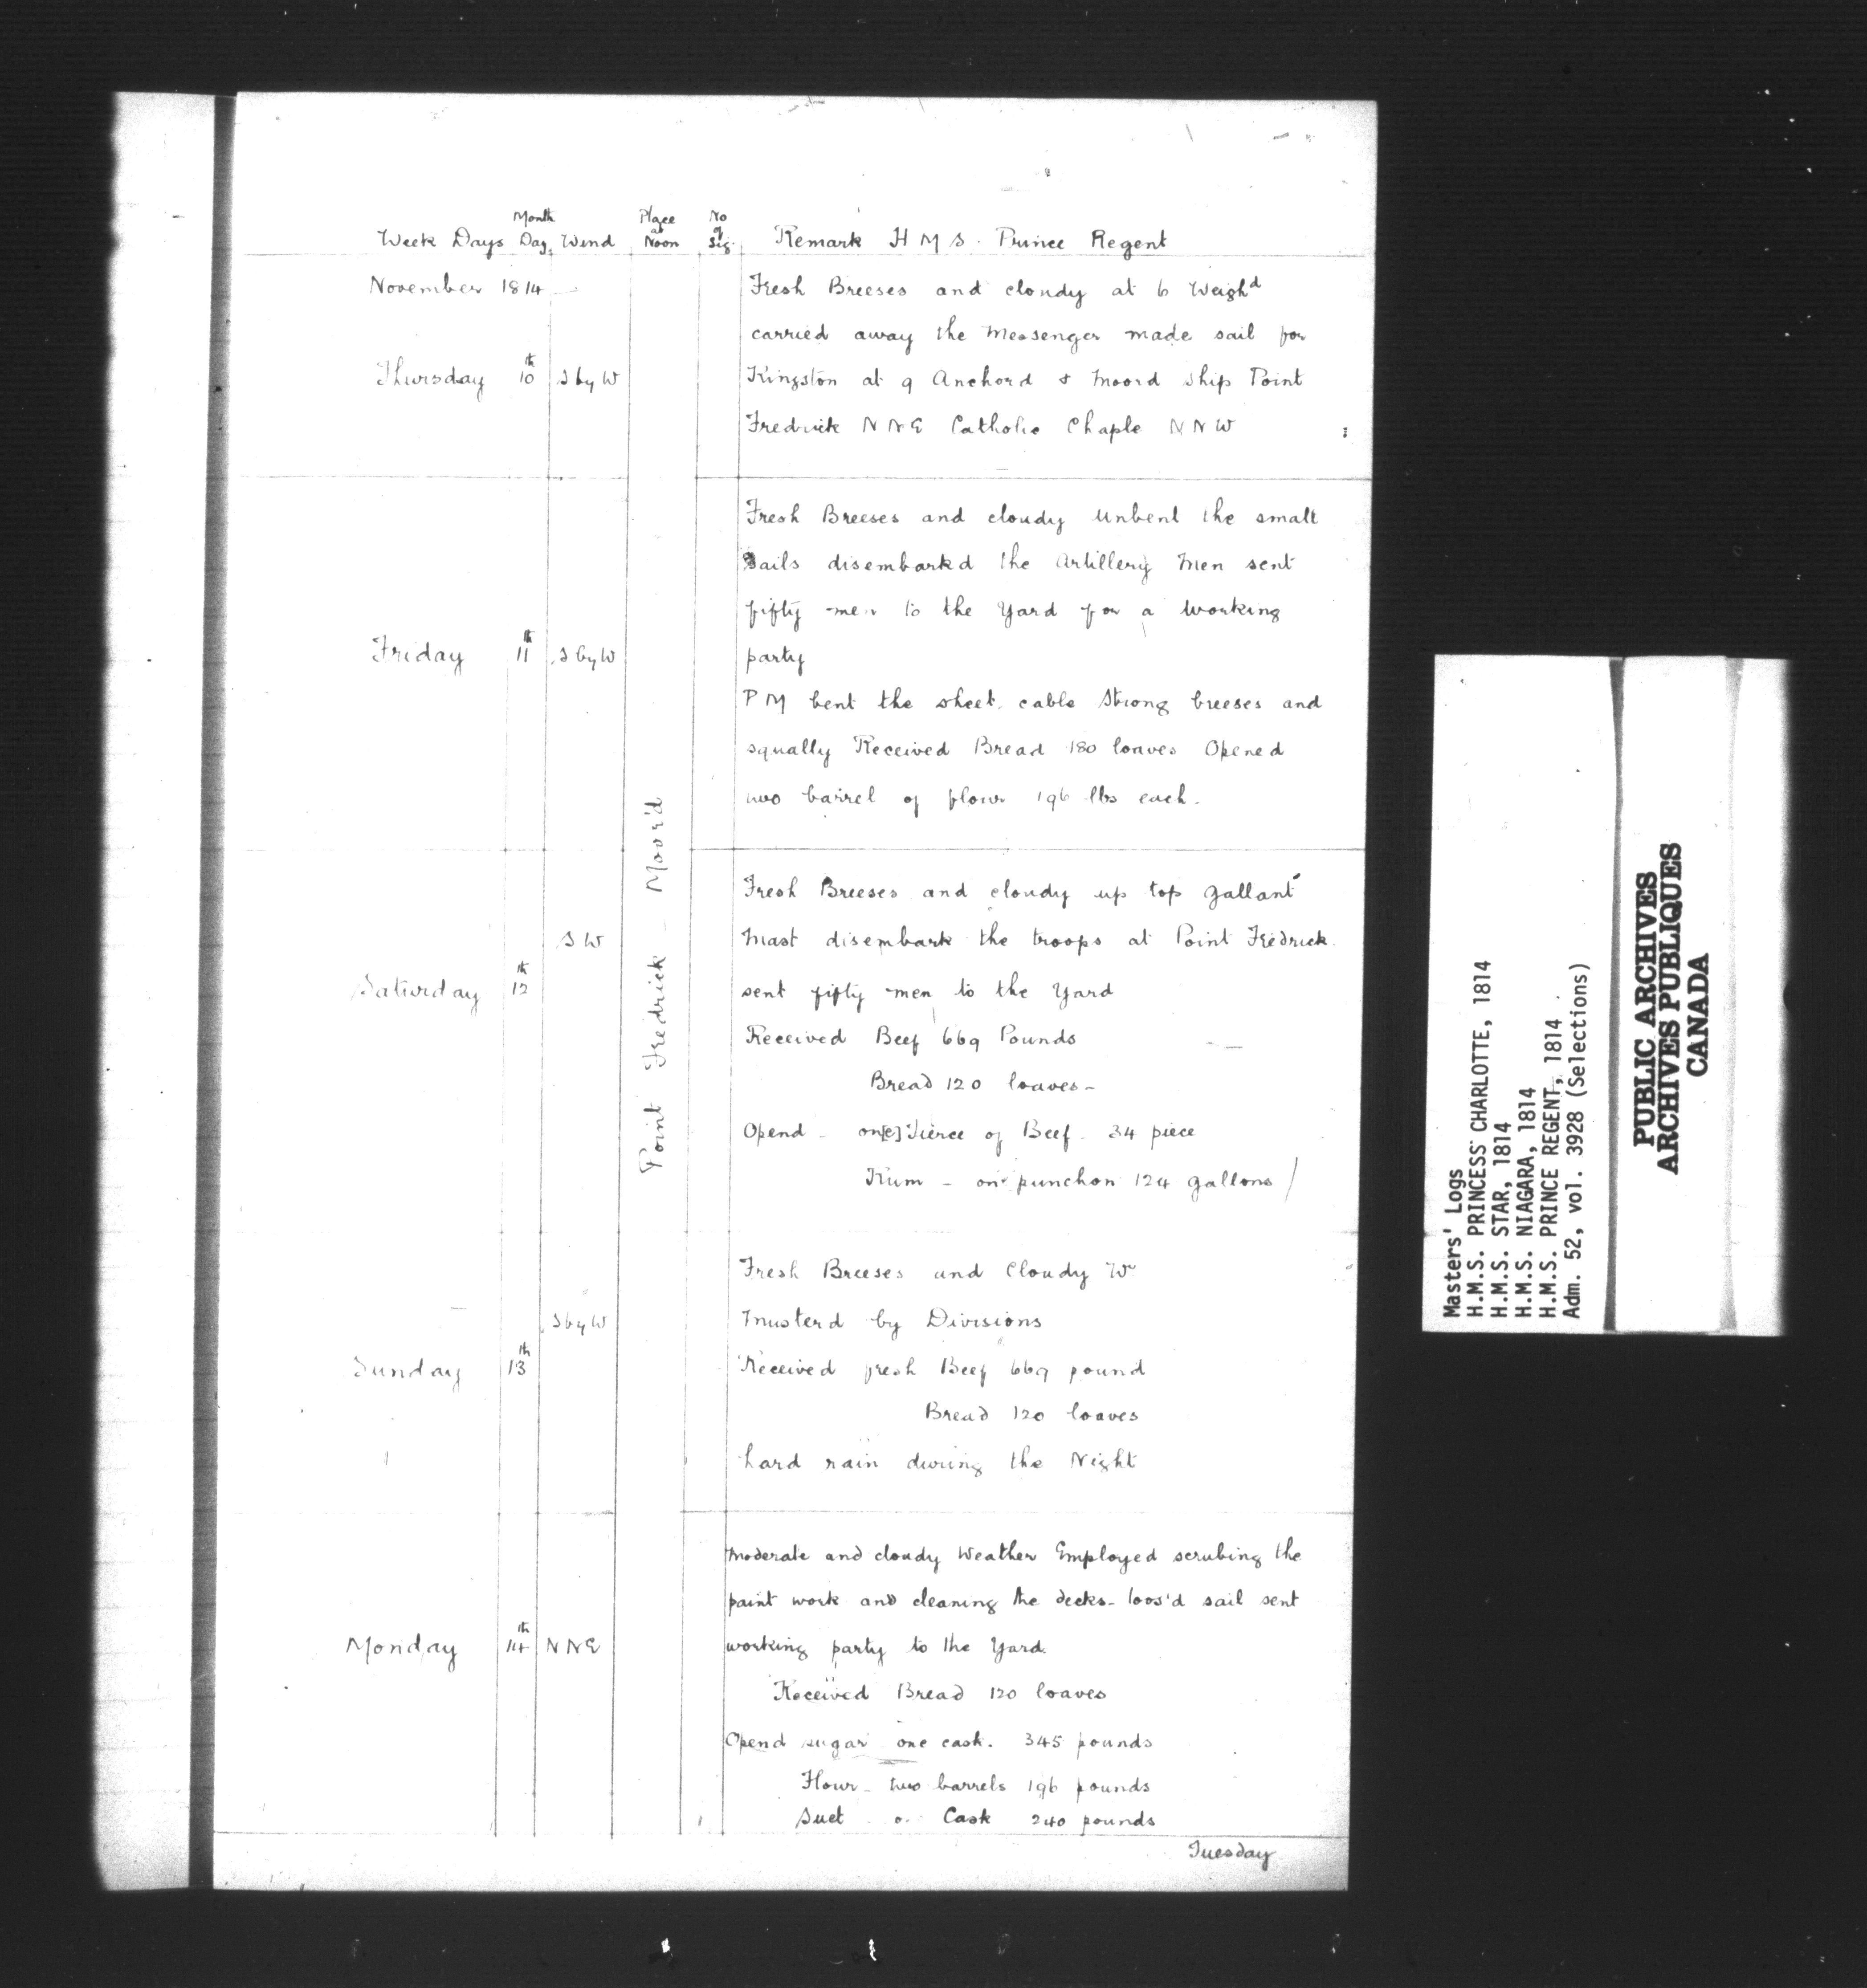 Week Days Month Day Wind Place at Noon No of Sig. Remark H M S. Prince Regent
November 1814
Fresh Breeses and cloudy at 6 Weighd
carried away the Messenger made sail for
Thursday 10th S by W Kingston at 9 Anchord & Moord Ship Point
Fredrick N N E Catholic Chaple N N W
Fresh Breeses and cloudy Unbent the small
Sails disembarkd the Artillery Men sent
fifty men to the Yard for a working
Friday 11th S by W party
P M bent the sheet cable Strong breeses and
squally Received Bread 180 loaves Opened
two barrel of flour 196 lbs each.
Point Fredrick - Moor'd
Fresh Breeses and cloudy up top gallant
S W Mast disembark the troops at Point Fredrick
Saturday 12th sent fifty men to the Yard
Received Beef 669 Pounds
Bread 120 loaves -
Opend - on[e] Tierce of Beef. 34 piece
Rum - on punchon 124 gallons /
Fresh Breeses and Cloudy Wr
S by W Musterd by Divisions
Sunday 13th Received fresh Beef 669 pound
Bread 120 loaves
hard rain during the Night
Moderate and cloudy Weather Employed scrubing the
paint work and cleaning the decks - loos'd sail sent
Monday 14th N N E working party to the Yard.
Received Bread 120 loaves
Opend sugar one cask. 345 pounds
Flour - two barrels 196 pounds
Suet Cask 240 pounds
Tuesday
Masters' Logs
H.M.S. PRINCESS CHARLOTTE, 1814
H.M.S. STAR, 1814
H.M.S. NIAGARA, 1814
H.M.S. PRINCE REGENT, 1814
Adm. 52, vol. 3928 (Selections)
PUBLIC ARCHIVES
ARCHIVES PUBLIQUES
CANADA